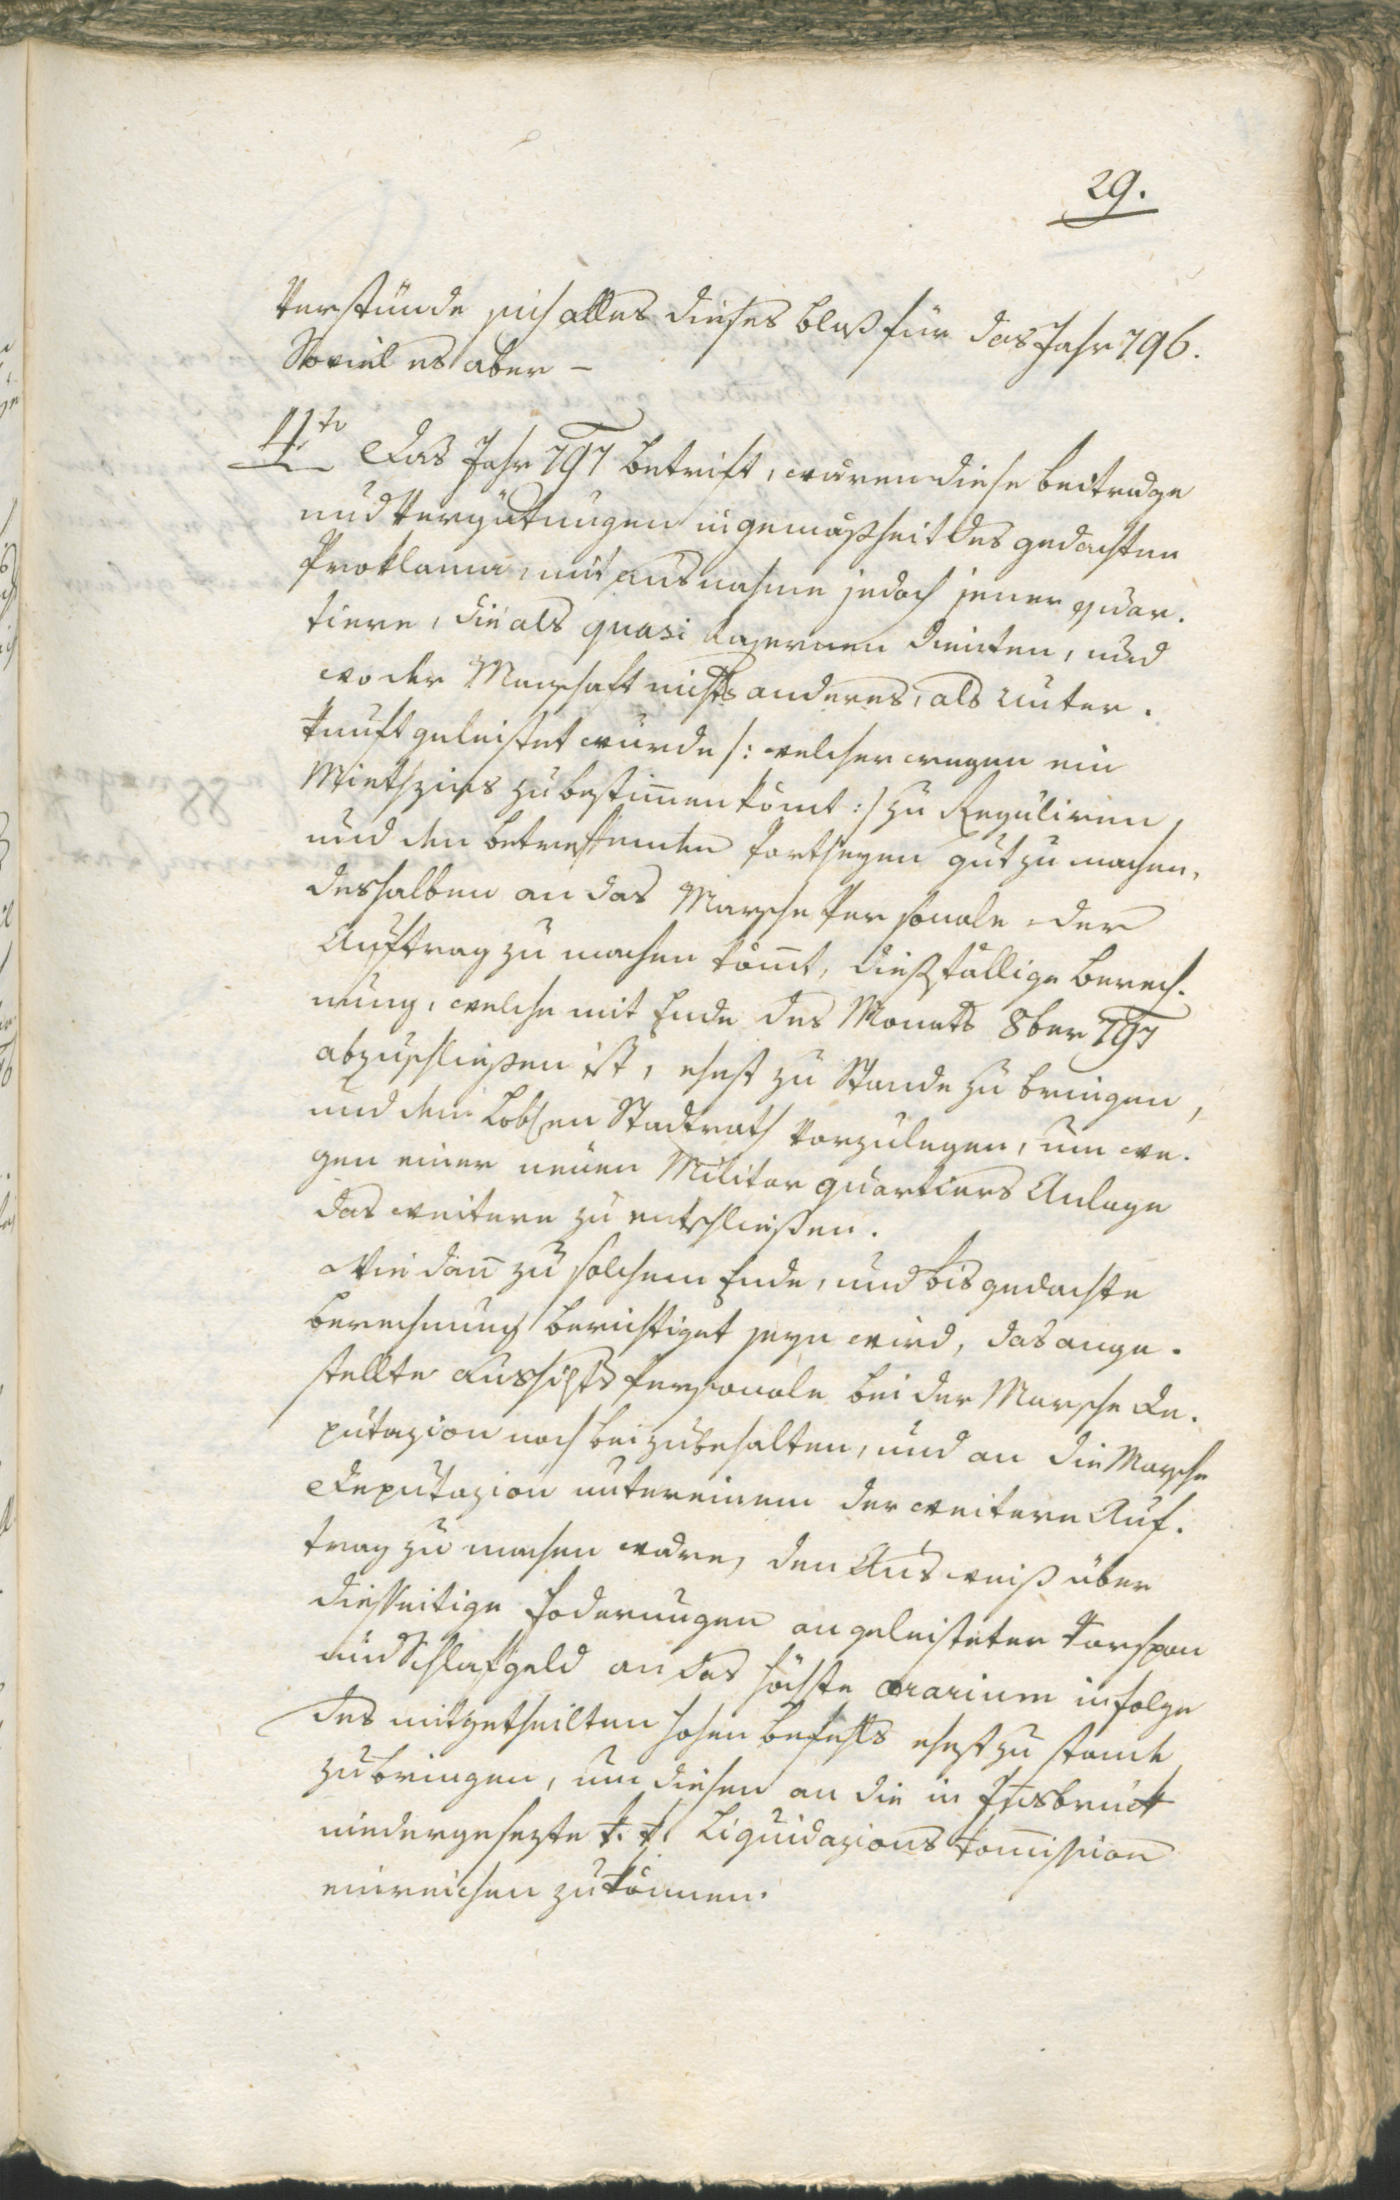 29.
Verstünde sich alles dieses blos für das Jahr 796.
Soviel es aber –
4tr Das Jahr 797 betrift, wären diese beiträge
und Vergütungen in gemäßheit des gedachten
Proklama, mit ausnahme jedoch jener quar.
tiere, die als quasi Kasernen dienten, und
wo der Manschaft nichts anderes, als unter.
kunft geleistet wurde /: welcher wegen ein
Miethzins zu bestim̄en kömt :/ zu Reguliren
und den betreffenden Partheyen gut zu machen,
deshalben an das Marsche Personale der
Auftrag zu machen köm̄t, diesfällige berech.
nung, welche mit Ende des Monats 8ber 797
abzuschließen ist, ehest zu Stande zu bringen,
und dem Lobl(en Stadtrath vorzulegen, um we.
gen einer neuen Militar quartiers Anlage
das weitere zu entschließen.
Wie dan̄ zu solchem Ende, und bis gedachte
berechnung berichtiget seyn wird, das ange.
stellte Aufsichts Personale bei der Marsche De.
putazion noch beizubehalten, und an die Marsche
Deputazion untereinem der weitere Auf.
trag zu machen wäre, den Ausweiß über
diesseitige Foderungen an geleisteter Vorspan
und Schlafgeld an das höchste ærarium in folge
des mitgetheilten hohen befehls ehest zu stande
zu bringen, um diesen an die in Insbruck
niedergesezte k. k. Liquidazions Kom̄ission
einreichen zu können.